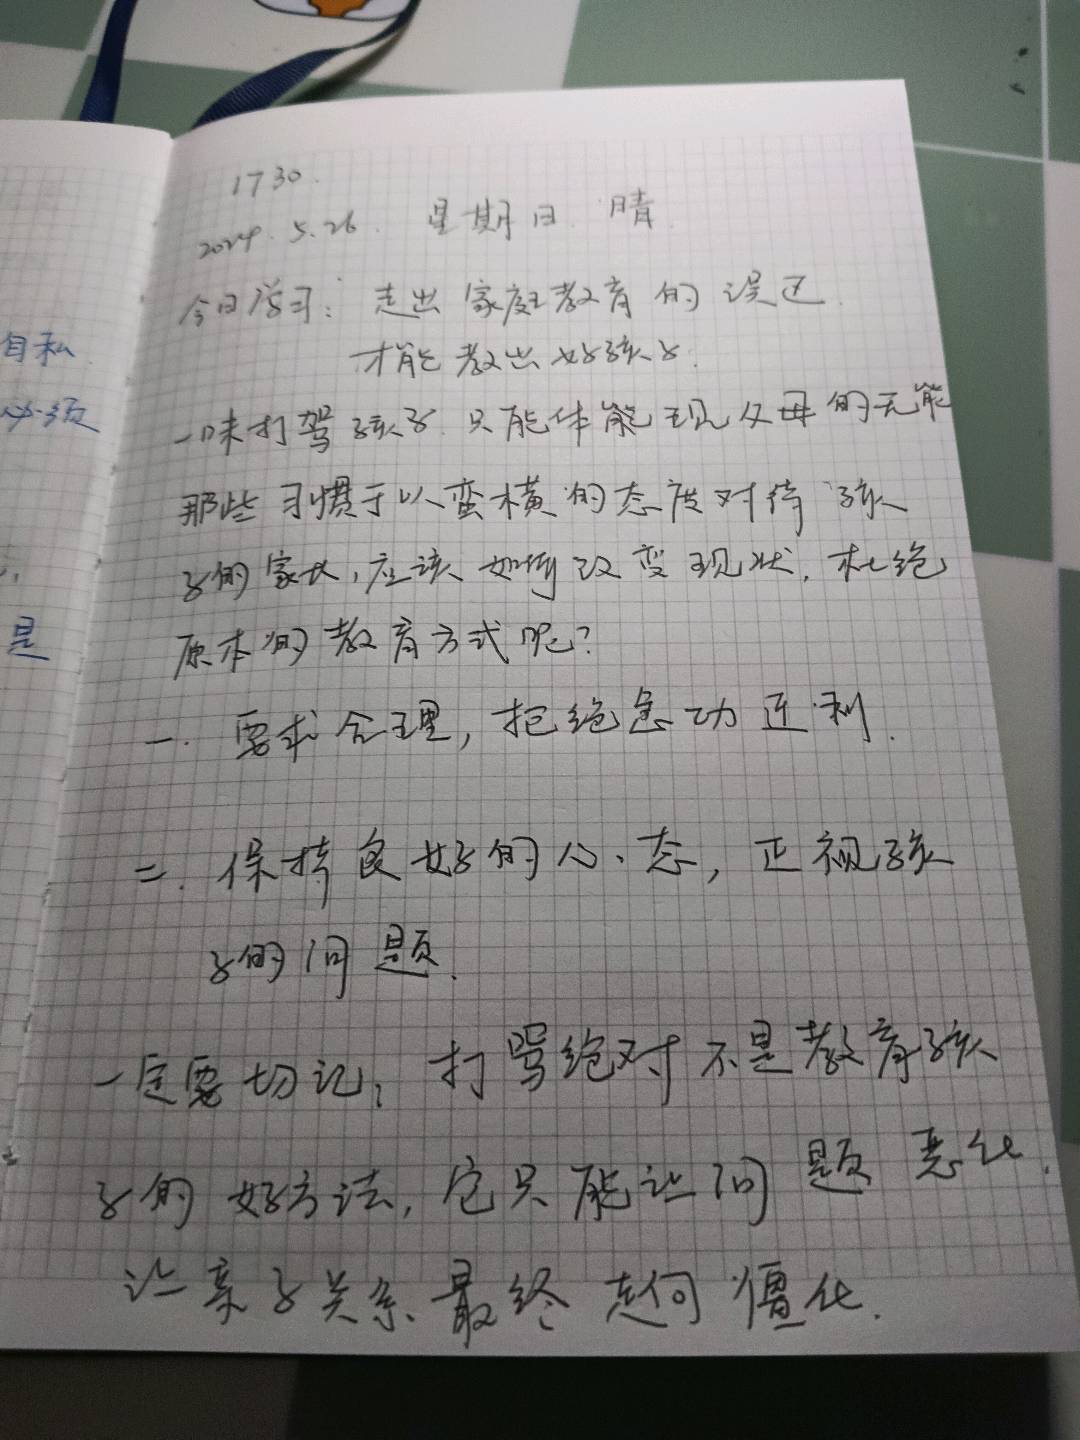 自私
必须
是
1730.
2024.5.26. 星期日. 晴.
今日学习: 走出家庭教育的误区.
才能教出好孩子.
一味打骂孩子.只能体能现父母的无能
那些习惯于以蛮横的态度对待孩
子的家长,应该如何改变现状,杜绝
原本的教育方式呢?
一. 要求合理,拒绝急功近利.
二. 保持良好的心态,正视孩
子的问题.
一定要切记,打骂绝对不是教育孩
子的好方法,它只能让问题恶化.
让亲子关系、最终走向僵化.